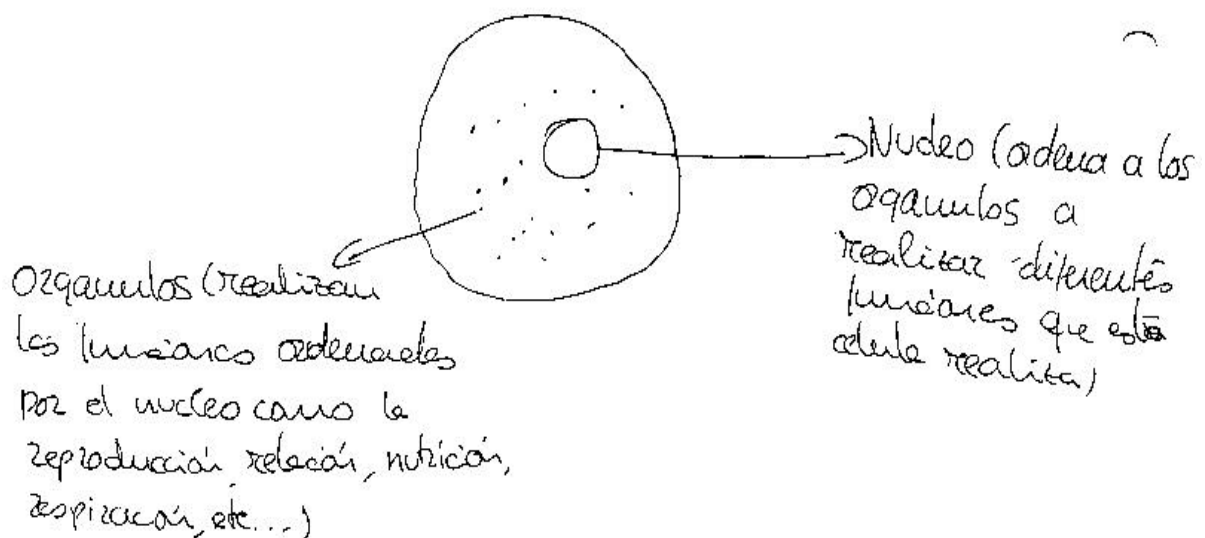 Nucleo (ordena a los
orgánulos a
realizar diferentes
funciones que esta
celula realiza)
Organulos (realizan
las funciones ordenadas
por el nucleo como la
reproducción, relación, nutrición,
respiración, etc...)